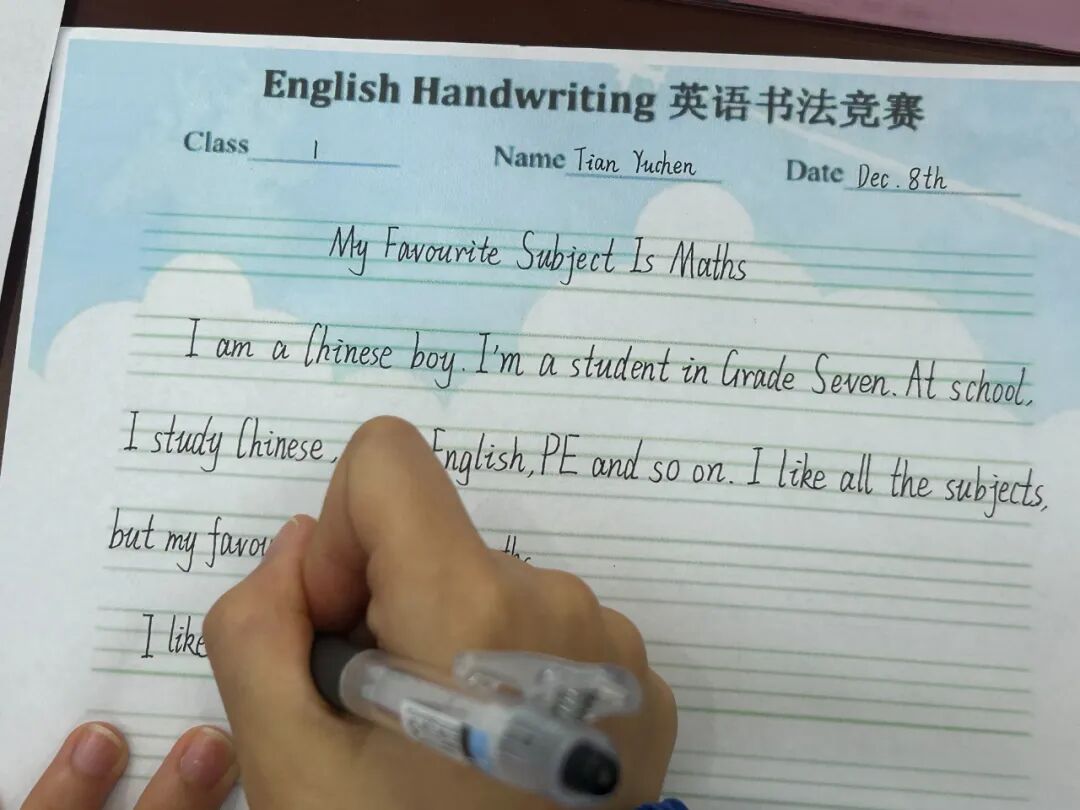 English Handwriting 英语书法竞赛
Class 1 Name Tian Yuchen Date Dec. 8th
My Favourite Subject Is Maths
I am a Chinese boy. I'm a student in Grade Seven. At school,
I study Chinese, English, PE and so on. I like all the subjects,
but my
I like